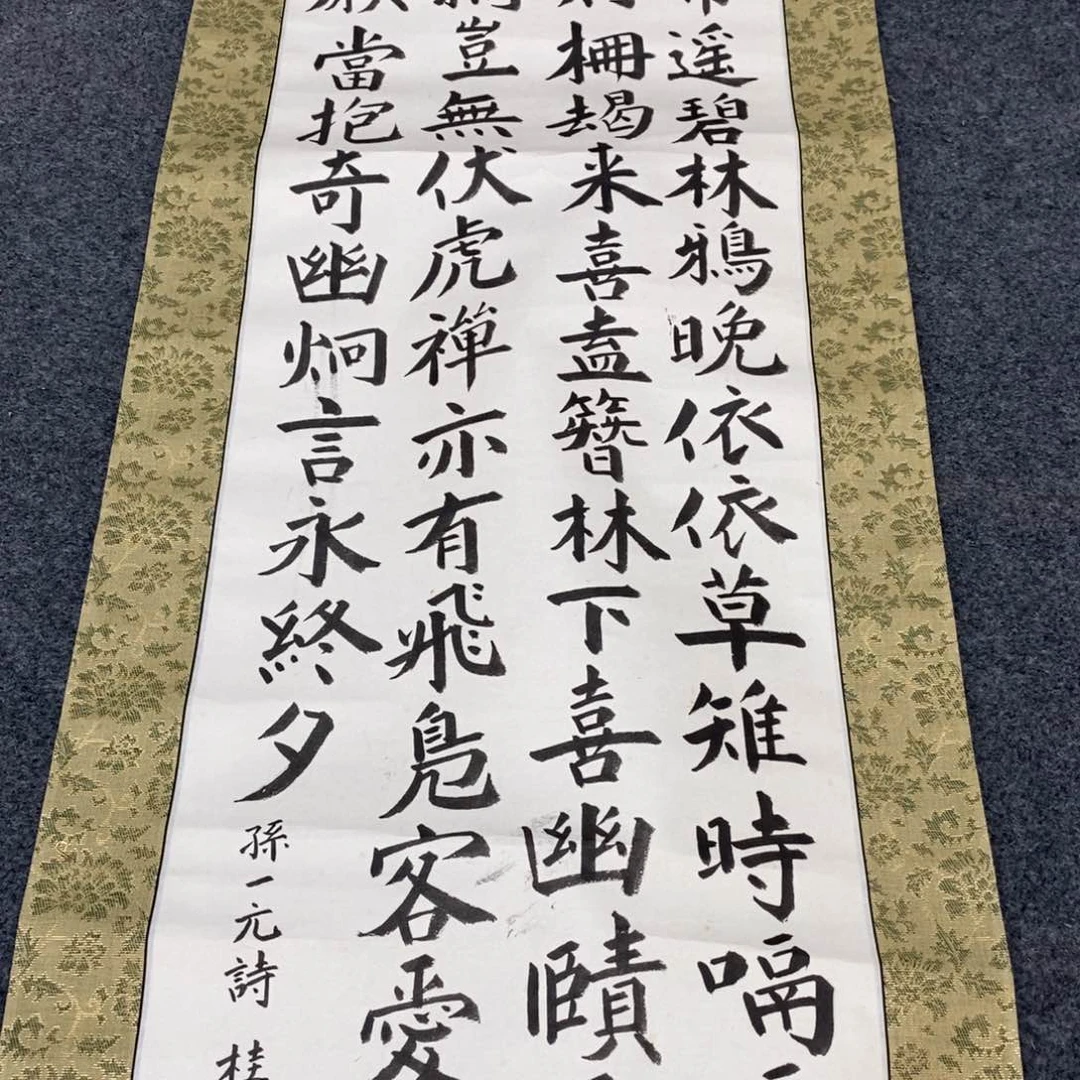 遥碧林鴉晚依依草雉時嗝
柵朅来喜盍簪林下喜幽賾
豈無伏虎禪亦有飛鳧客愛
當抱奇幽炯言永終夕
孫一元詩 桂